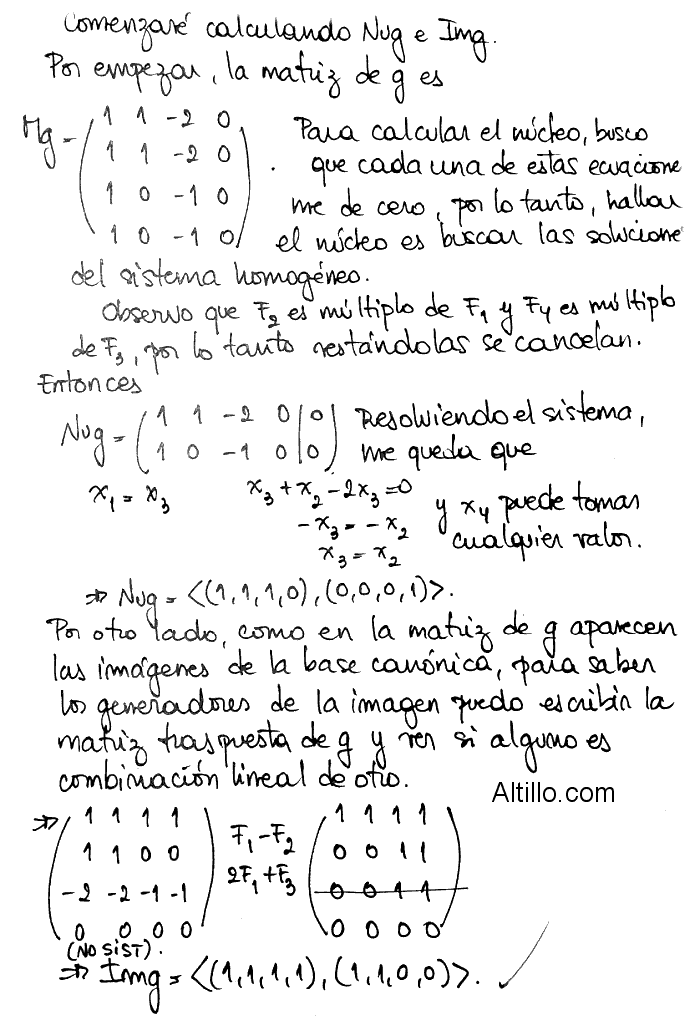 Comenzaré calculando Nug e Img.
Por empezar, la matriz de g es
Mg = ( 1 1 -2 0
1 1 -2 0
1 0 -1 0
1 0 -1 0 ).
Para calcular el núcleo, busco
que cada una de estas ecuacione
me de cero, por lo tanto, hallar
el núcleo es buscar las solucione
del sistema homogéneo.
Observo que F2 es múltiplo de F1 y F4 es múltiplo
de F3, por lo tanto restándolas se cancelan.
Entonces
Nug = ( 1 1 -2 0 | 0
1 0 -1 0 | 0 )
Resolviendo el sistema,
me queda que
x1 = x3
x3 + x2 - 2x3 = 0
-x3 = -x2
x3 = x2
y x4 puede tomar
cualquier valor.
⇒ Nug = <(1,1,1,0), (0,0,0,1)>.
Por otro lado, como en la matriz de g aparecen
las imágenes de la base canónica, para saber
los generadores de la imagen puedo escribir la
matriz traspuesta de g y ver si alguno es
combinación lineal de otro.
Altillo.com
⇒ ( 1 1 1 1
1 1 0 0
-2 -2 -1 -1
0 0 0 0 )
(NO SIST).
F1 - F2
2F1 + F3
( 1 1 1 1
0 0 1 1
0 0 1 1
0 0 0 0 )
⇒ Img = <(1,1,1,1), (1,1,0,0)>. ✓